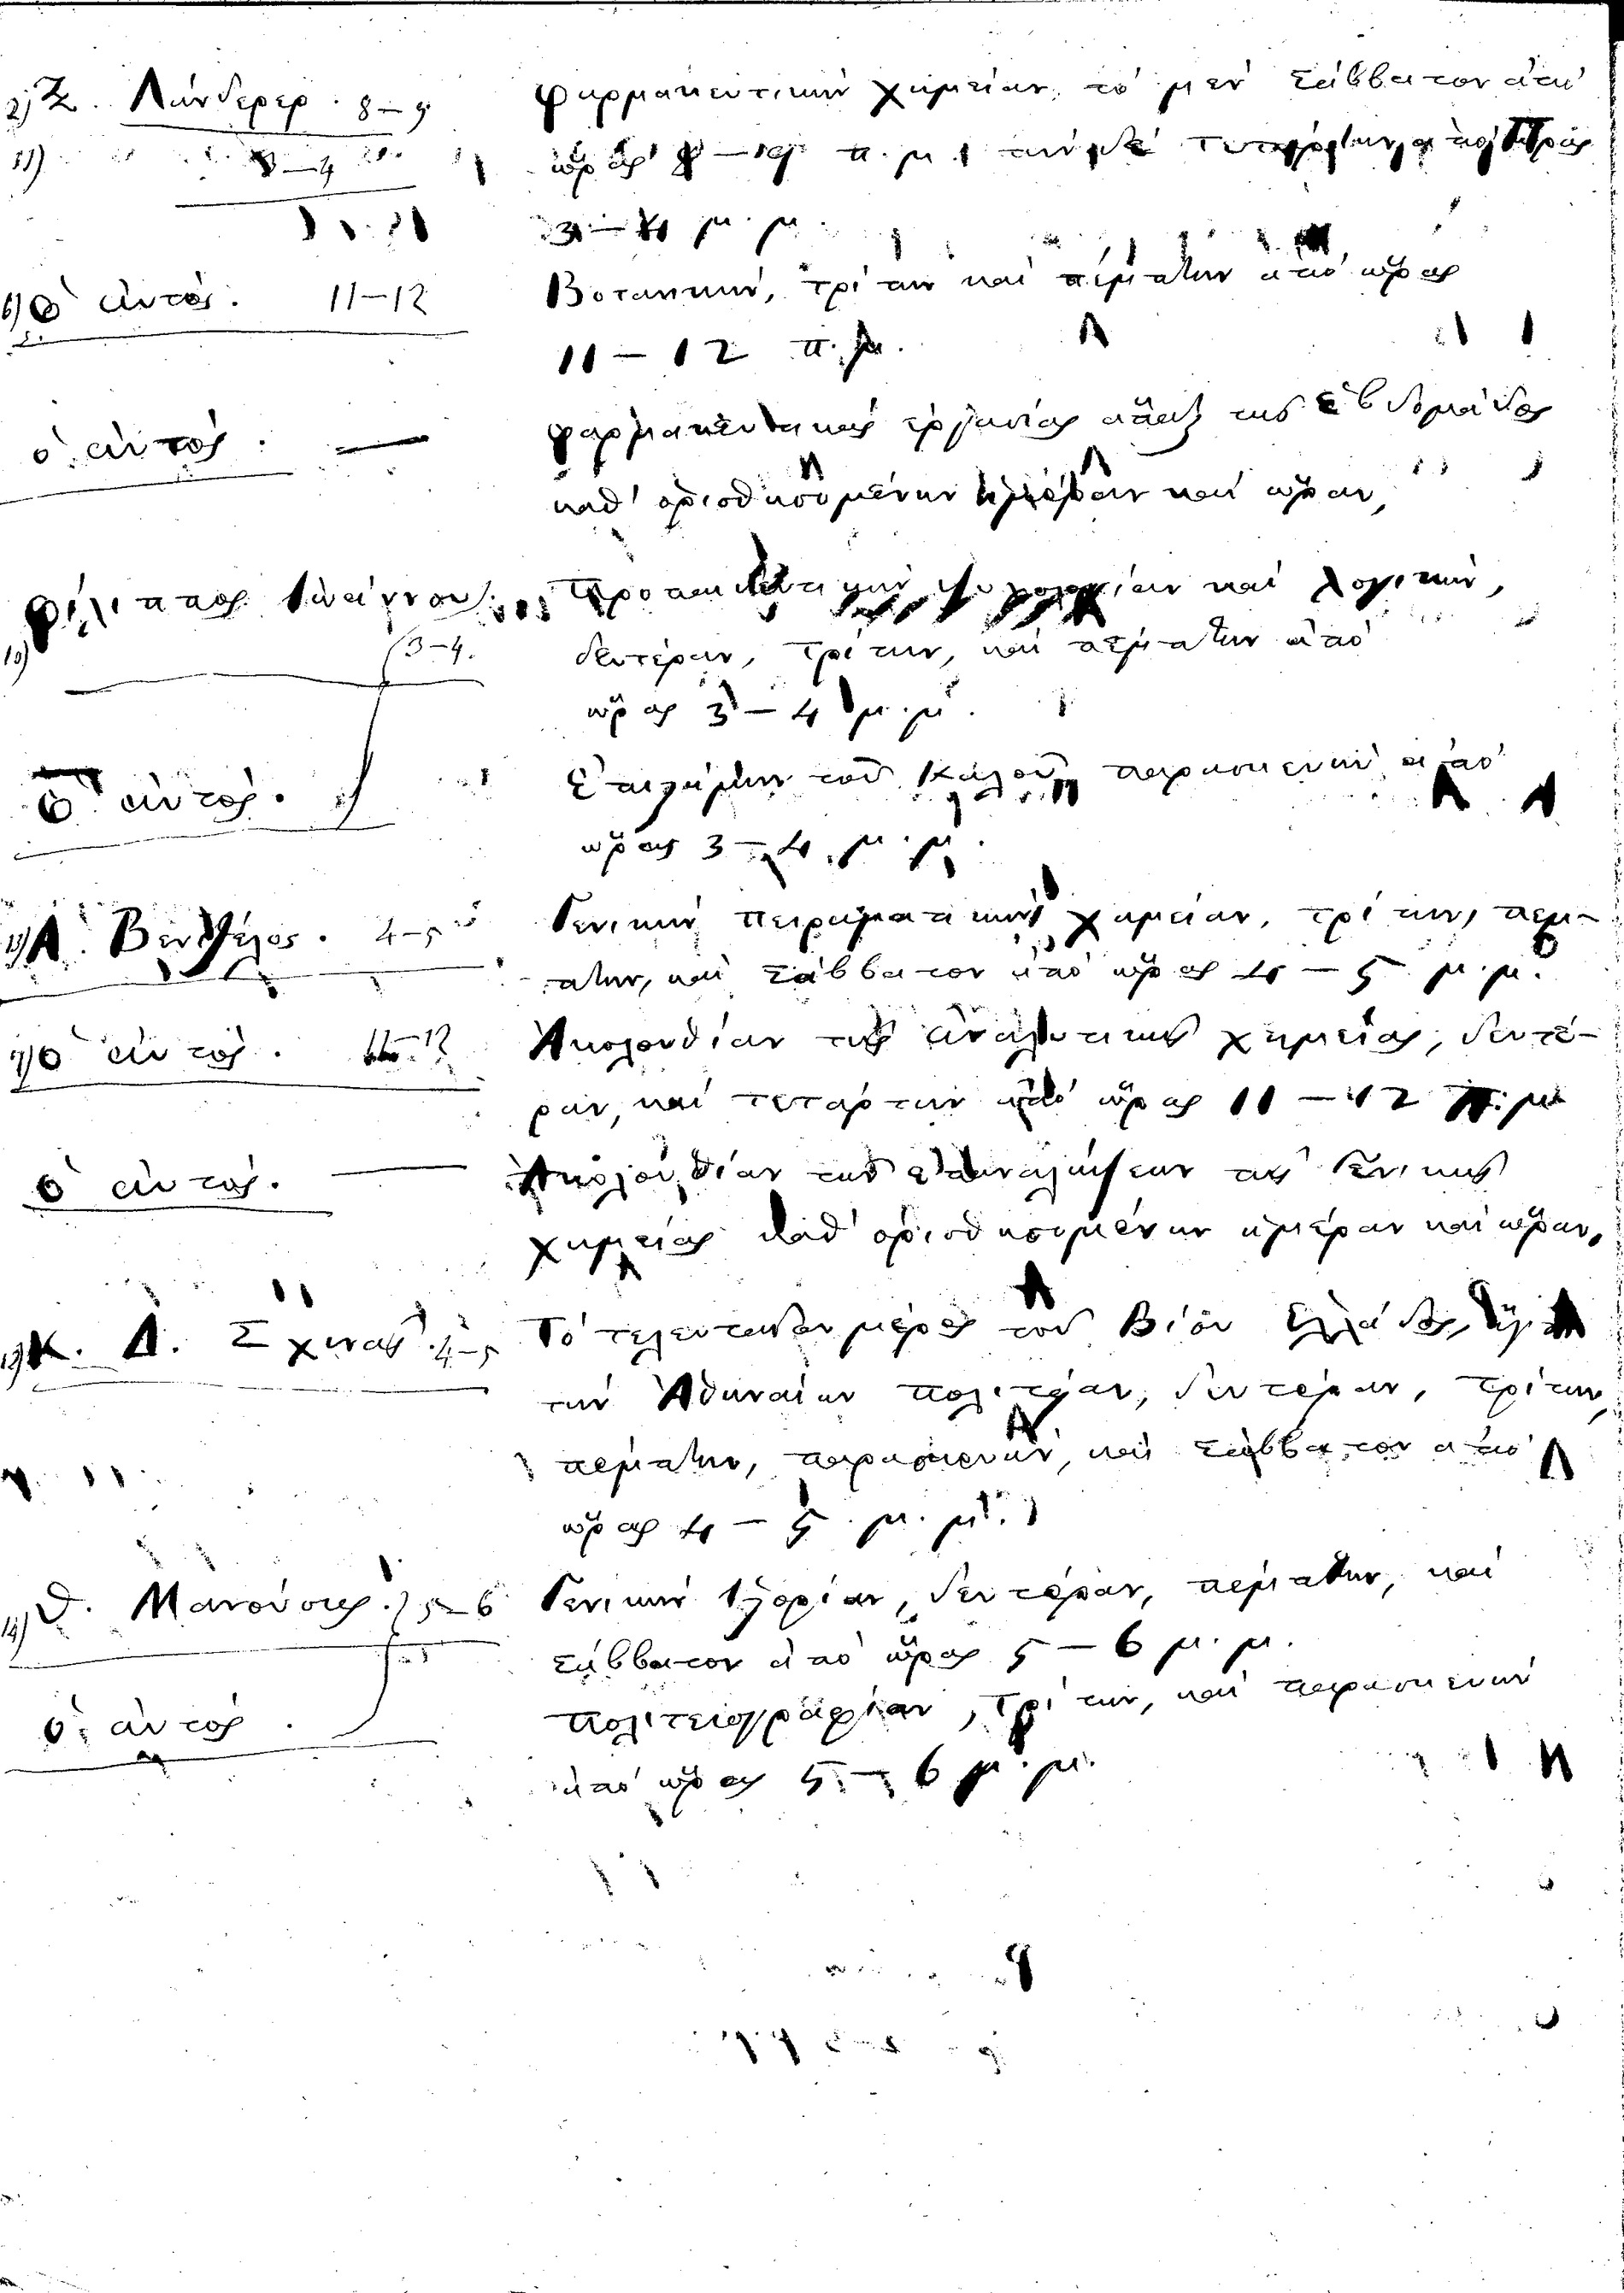 2) Ξ. Λάνδερερ. 8–9 φαρμακευτικὴν χημείαν, τὸ μὲν Σάββατον ἀπὸ
11) 3–4 ὥρας 8 – 9 π. μ. τὴν δὲ τετάρτην ἀπὸ ὥρας
3 – 4 μ. μ.
6) ὁ αὐτός. 11–12 Βοτανικὴν, τρίτην καὶ πέμπτην ἀπὸ ὥρας
11 – 12 π. μ.
ὁ αὐτός. — φαρμακευτικὰς ἐργασίας ἅπαξ τῆς ἑβδομάδος
καθ' ὁρισθησομένην ἡμέραν καὶ ὥραν,
Φίλιππος Ἰωάννου. Προπαιδευτικὴν ψυχολογίαν καὶ λογικὴν,
10) 3–4. δευτέραν, τρίτην, καὶ πέμπτην ἀπὸ
ὥρας 3 – 4 μ. μ.
ὁ αὐτός. Ἐπιστήμην τοῦ Καλοῦ, παρασκευὴν ἀπὸ
ὥρας 3 – 4 μ. μ.
Α. Βενθύλος. 4–5 Γενικὴν πειραματικὴν χημείαν, τρίτην, πέμ–
πτην, καὶ Σάββατον ἀπὸ ὥρας 4 – 5 μ. μ.
7) ὁ αὐτός. 11–12 Ἀκολουθίαν τῆς ἀναλυτικῆς χημείας, δευτέ–
ραν, καὶ τετάρτην ἀπὸ ὥρας 11 – 12 π. μ.
ὁ αὐτός. — Ἀκολουθίαν τῶν ἐπαναλήψεων τῆς Γενικῆς
χημείας καθ' ὁρισθησομένην ἡμέραν καὶ ὥραν,
Κ. Δ. Σχινᾶς. 4–5 Τὸ τελευταῖον μέρος τοῦ Βίου Ἑλλάδος,
τὴν Ἀθηναίων πολιτείαν, δευτέραν, τρίτην,
πέμπτην, παρασκευὴν, καὶ Σάββατον ἀπὸ
ὥρας 4 – 5 μ. μ.
14) Θ. Μανούσης. 5–6 Γενικὴν Ἱστορίαν, δευτέραν, πέμπτην, καὶ
Σάββατον ἀπὸ ὥρας 5 – 6 μ. μ.
ὁ αὐτός. Πολιτειογραφίαν, τρίτην, καὶ παρασκευὴν
ἀπὸ ὥρας 5 – 6 μ. μ.